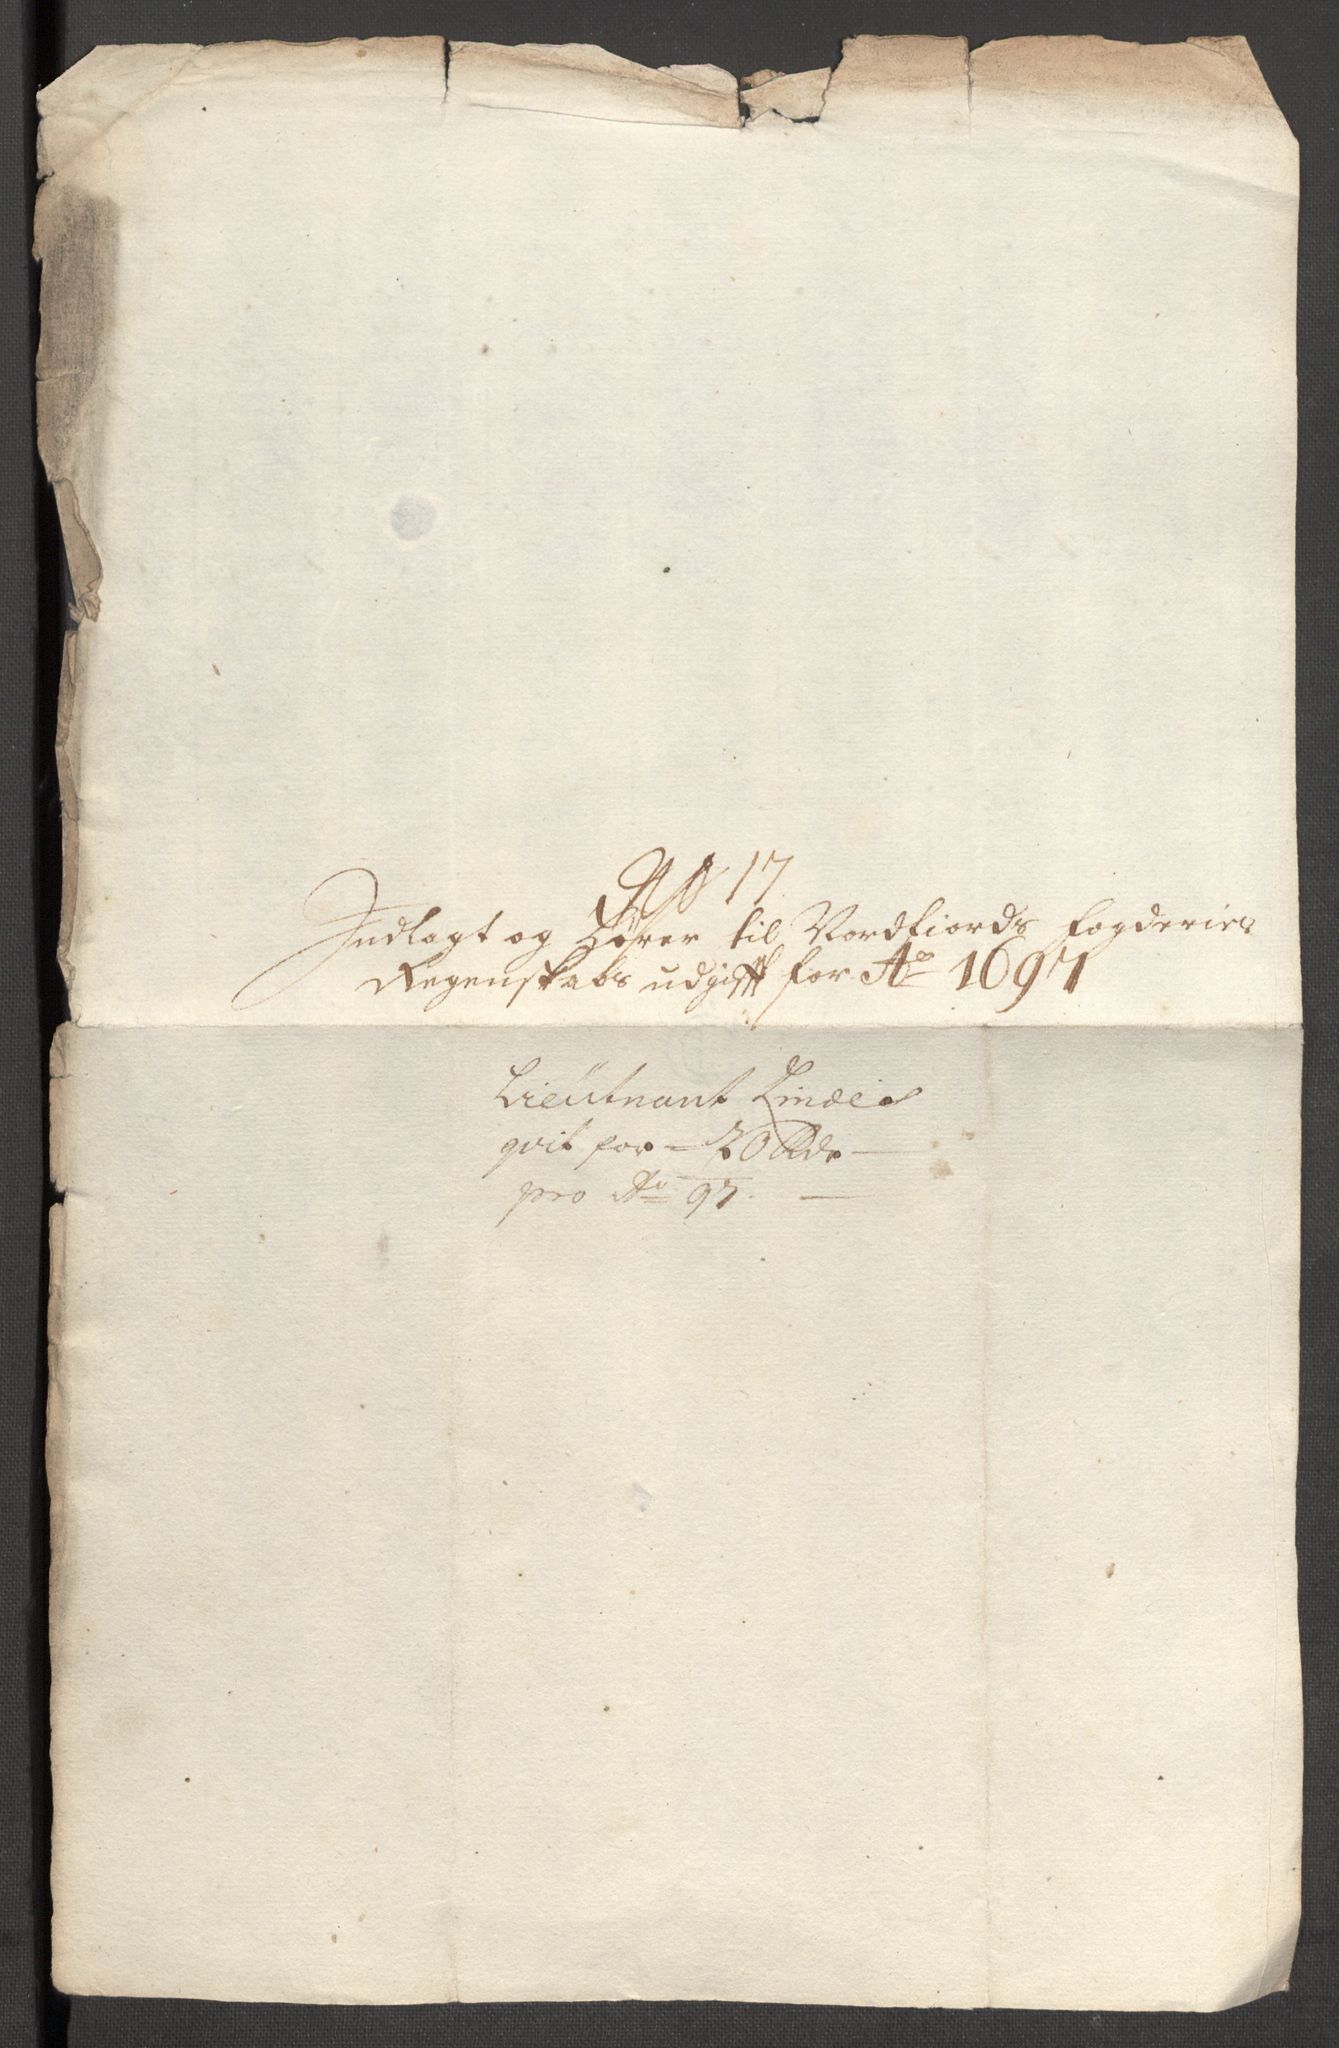 No 17
Indlagt og Hører til Nordfiords fogderies
Regenskabs udgifft for Ao 1697
Lieutnant Lindes
qvit for – 20 Rdr –
pro Ao 97. –